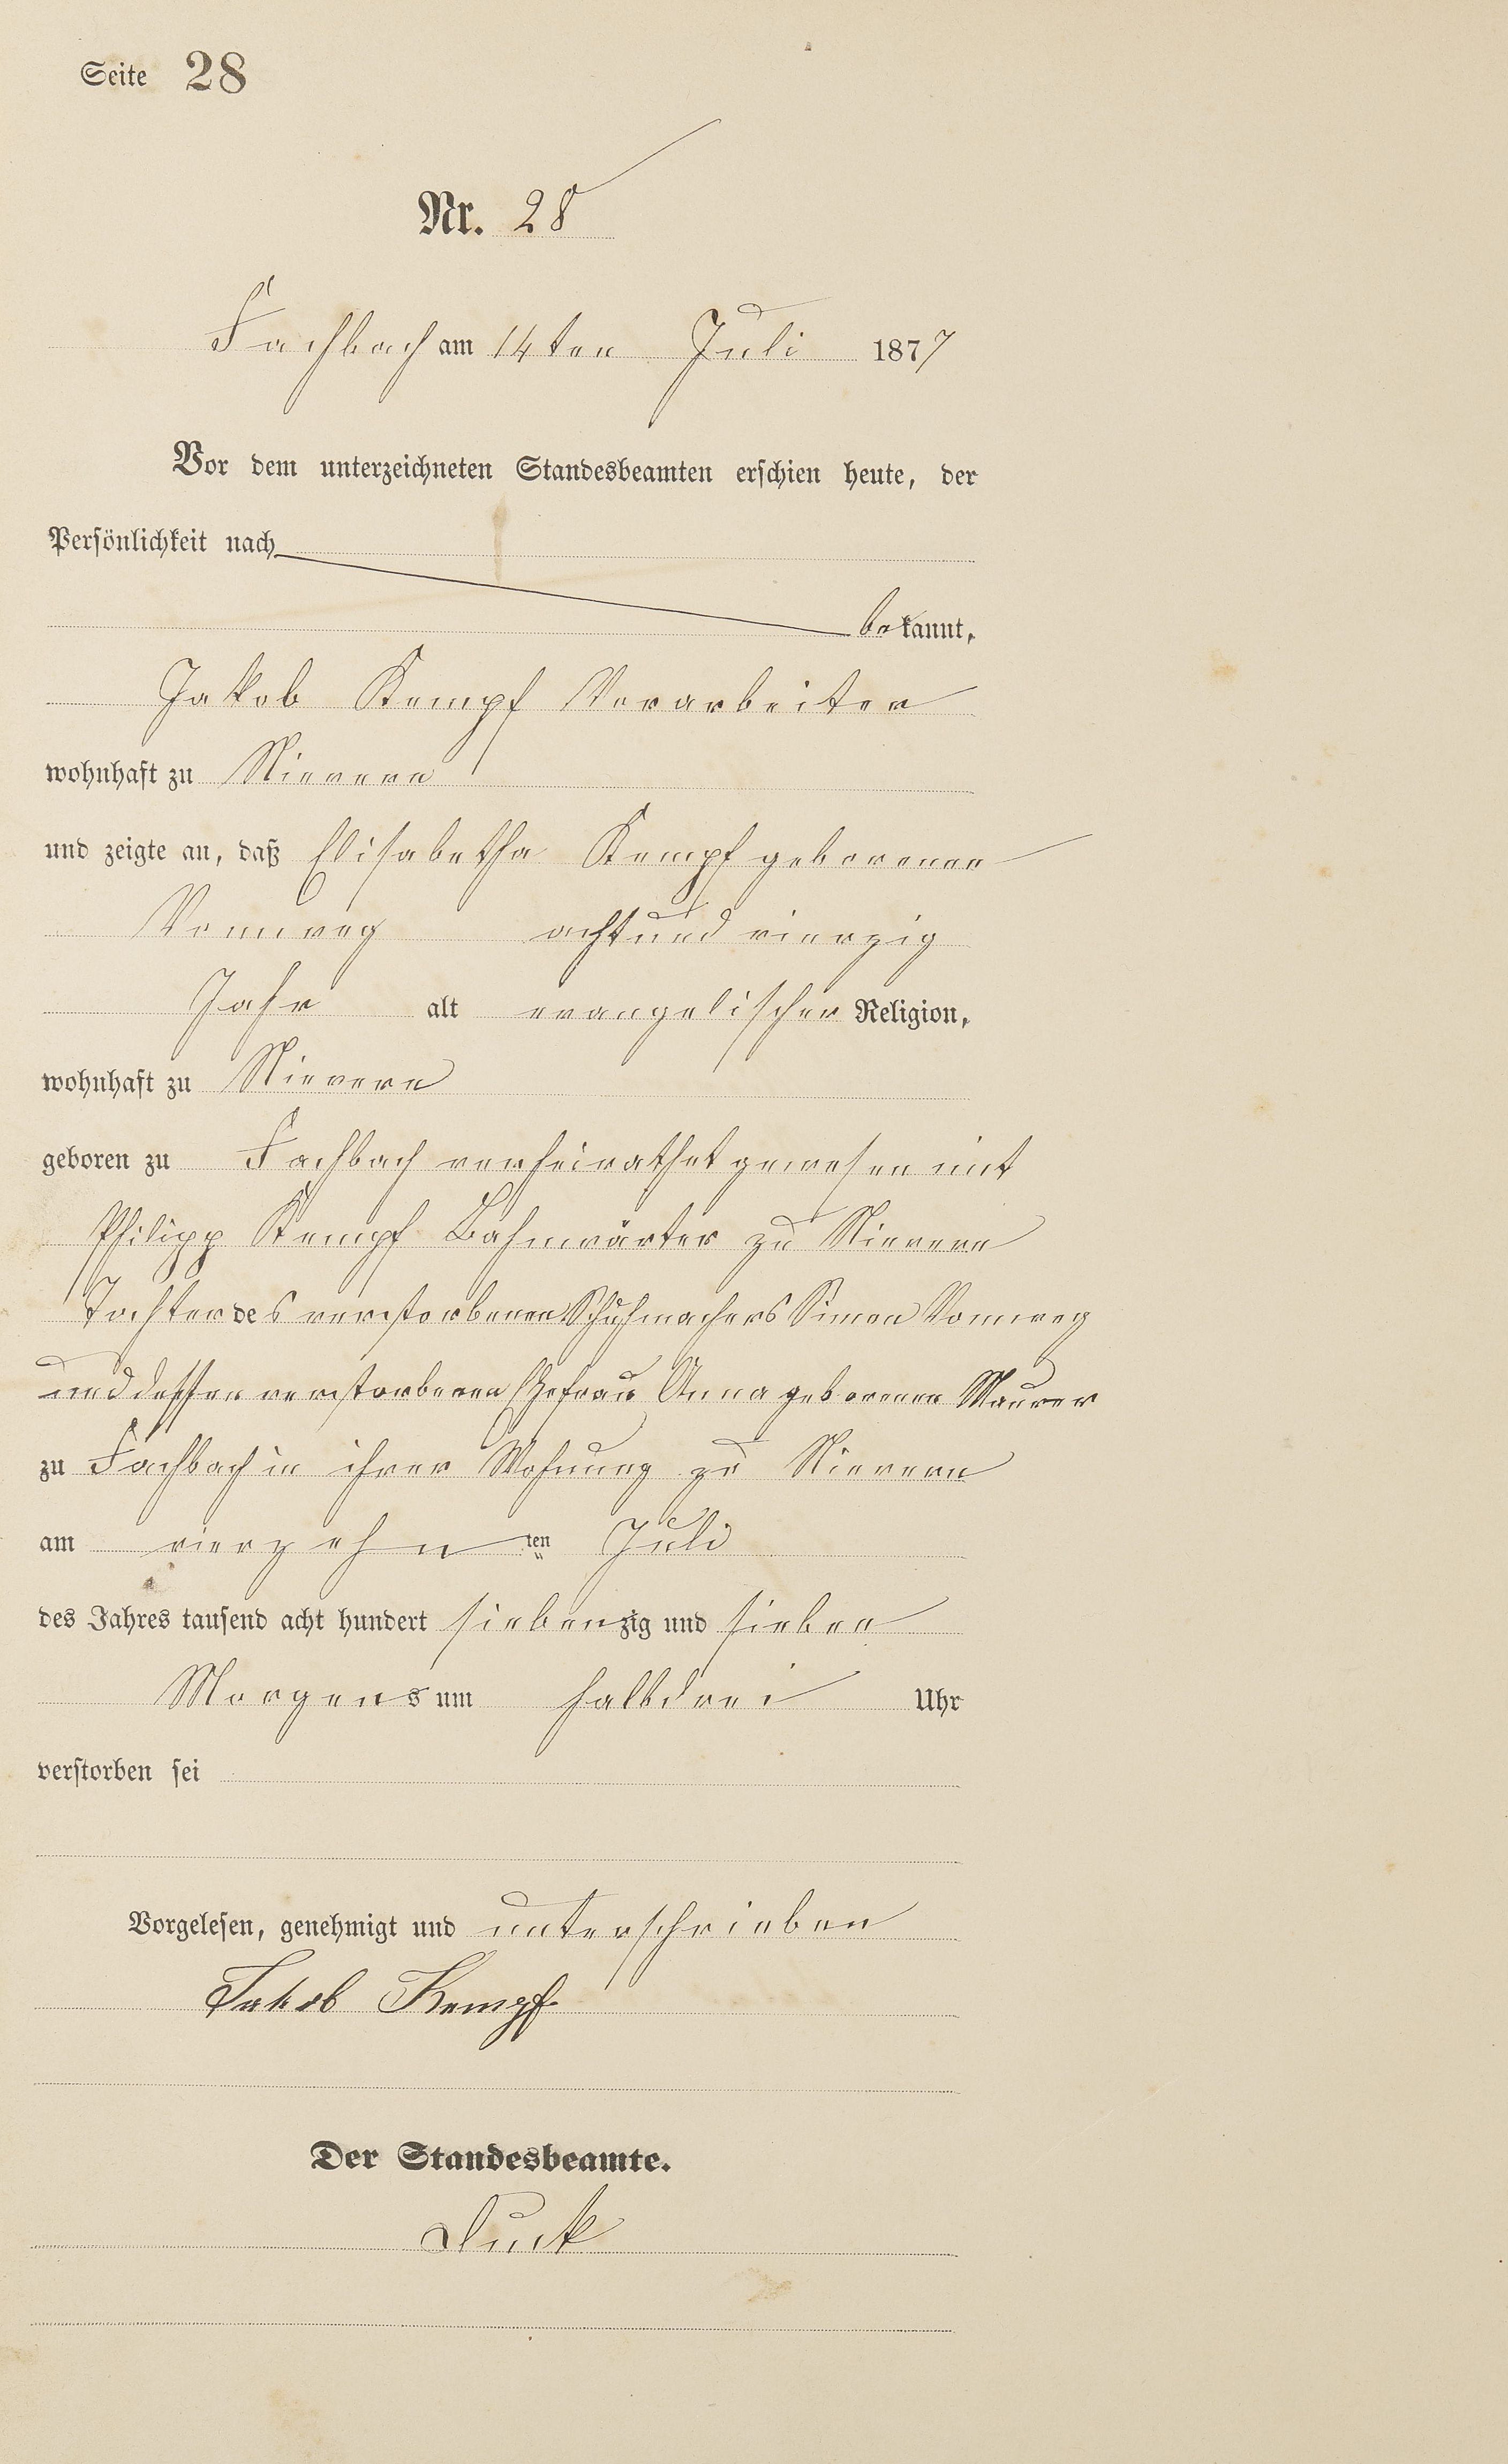 Seite 28
Nr. 28
Fachbach am 14ten Juli 1877
Vor dem unterzeichneten Standesbeamten erschien heute, der
Persönlichkeit nach
bekannt,
Jakob Kempf Vorarbeiter
wohnhaft zu Nievern
und zeigte an, daß Elisabetha Kempf geborenen
Vomweg achtund vierzig
Jahr alt evangelischer Religion,
wohnhaft zu Nievern
geboren zu Fachbach verheirathet gewesen mit
Philipp Kempf Bahnwärter zu Nievern
Tochter des verstorbenen Schuhmachers Simon Vomweg
und dessen verstorbenen Ehefrau Anna geborenen Maurer
zu Fachbach in ihrer Wohnung zu Nievern
am vierzehn ten Juli
des Jahres tausend acht hundert siebenzig und sieben
Morgens um halbdrei Uhr
verstorben sei
Vorgelesen, genehmigt und unterschrieben
Jakob Kempf
Der Standesbeamte.
Duck